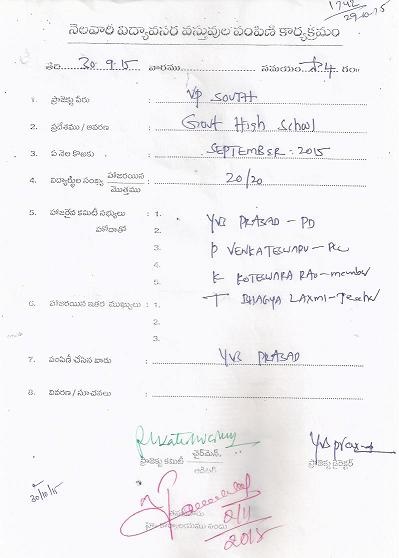 1742
29-10-15
నెలవారీ విద్యావసర వస్తువుల పంపిణీ కార్యక్రమం
తేది 30.9.15 వారము సమయం గం॥
1. ప్రాజెక్టు పేరు : VP SOUTH
2. ప్రదేశము / ఆవరణ : Govt High School
3. ఏ నెల కొఱకు : SEPTEMBER-2015
4. విద్యార్థుల సంఖ్య హాజరయిన / మొత్తము : 20/20
5. హాజరైన కమిటీ సభ్యులు హోదాతో : 1. YVB PRASAD - PD
2. P VENKATESWARU -
3. K KOTESWARA RAO - member
4. T BHAGYA LAXMI - Teacher
5.
6. హాజరయిన ఇతర ముఖ్యులు : 1.
2.
3.
7. పంపిణీ చేసిన వారు : YVB PRASAD
8. వివరణ / సూచనలు :
ప్రాజెక్టు కమిటీ ఛైర్మెన్, / ఆడిటర్
ప్రాజెక్ట్ డైరెక్టర్
30/10/15
2/11
2015